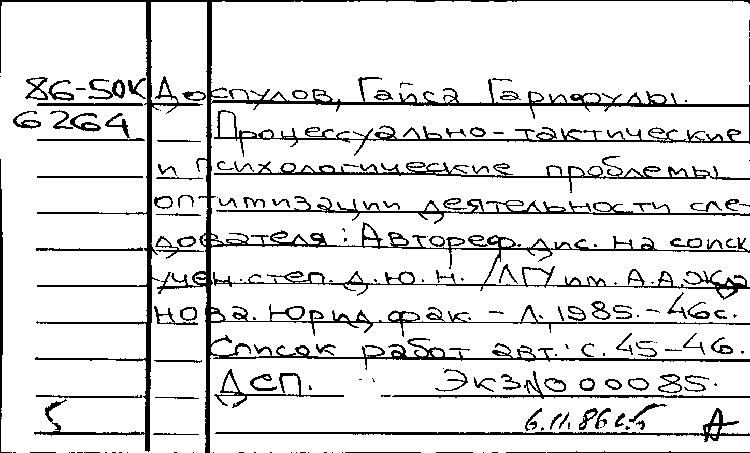 86-50К Доспулов, Гайса Гарифулы.
6264 Процессуально-тактические
и психологические проблемы
оптимизации деятельности сле-
дователя: Автореф. дис. на соиск
учен. степ. д.ю.н. /ЛГУ им. А.А. Жда
нова. Юрид. фак. - Л., 1985. - 46с.
Список работ авт.: с. 45-46.
ДСП. Экз№ 000085.
5 6.11.86 А